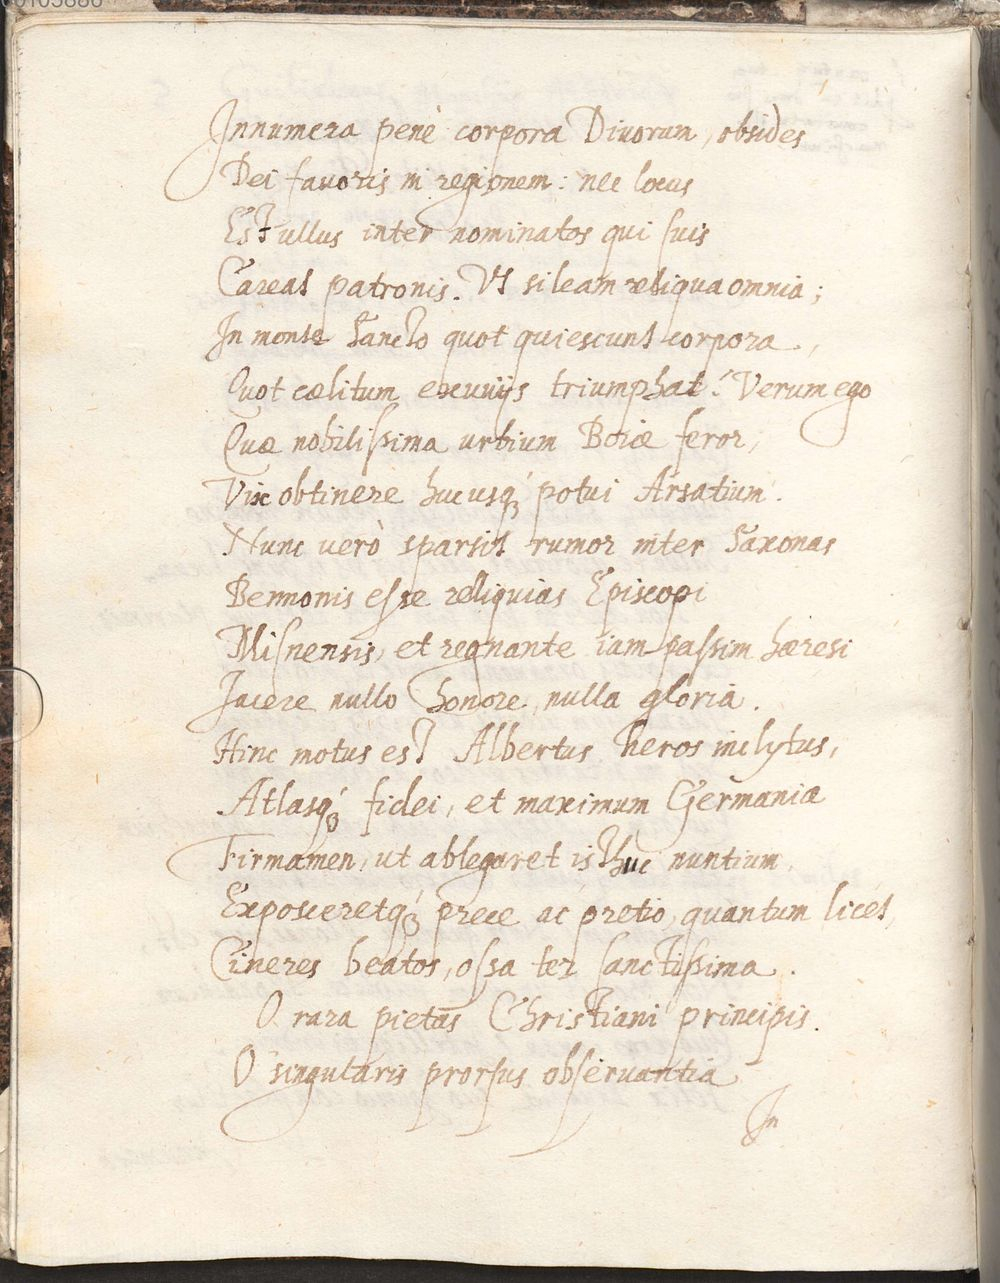 Innumera penè corpora Diuorum, obsides
Dei fauoris in regionem: nec locus
Est ullus inter nominatos qui suis
Careat patronis. Vt sileam reliqua omnia;
In monte Sancto quot quiescunt corpora,
Quot cœlitum exuuijs triumphat! Verum ego
Quæ nobilissima urbium Boiæ feror,
Vix obtinere hucusq́ue potui Arsatium.
Nunc verò sparsit rumor inter Saxonas
Bennonis esse relliquias Episcopi
Misnensis, et regnante iam passim hæresi
Iacere nullo honore, nulla gloria.
Hinc motus est Albertus heros inclytus,
Atlasq́ue fidei, et maximum Germaniæ
Firmamen, ut ablegaret isthuc nuntium
Exposceretq́ue prece ac pretio, quantum licet,
Cineres beatos, ossa ter sanctissima.
O rara pietas Christiani principis.
O singularis prorsus obseruantia
In